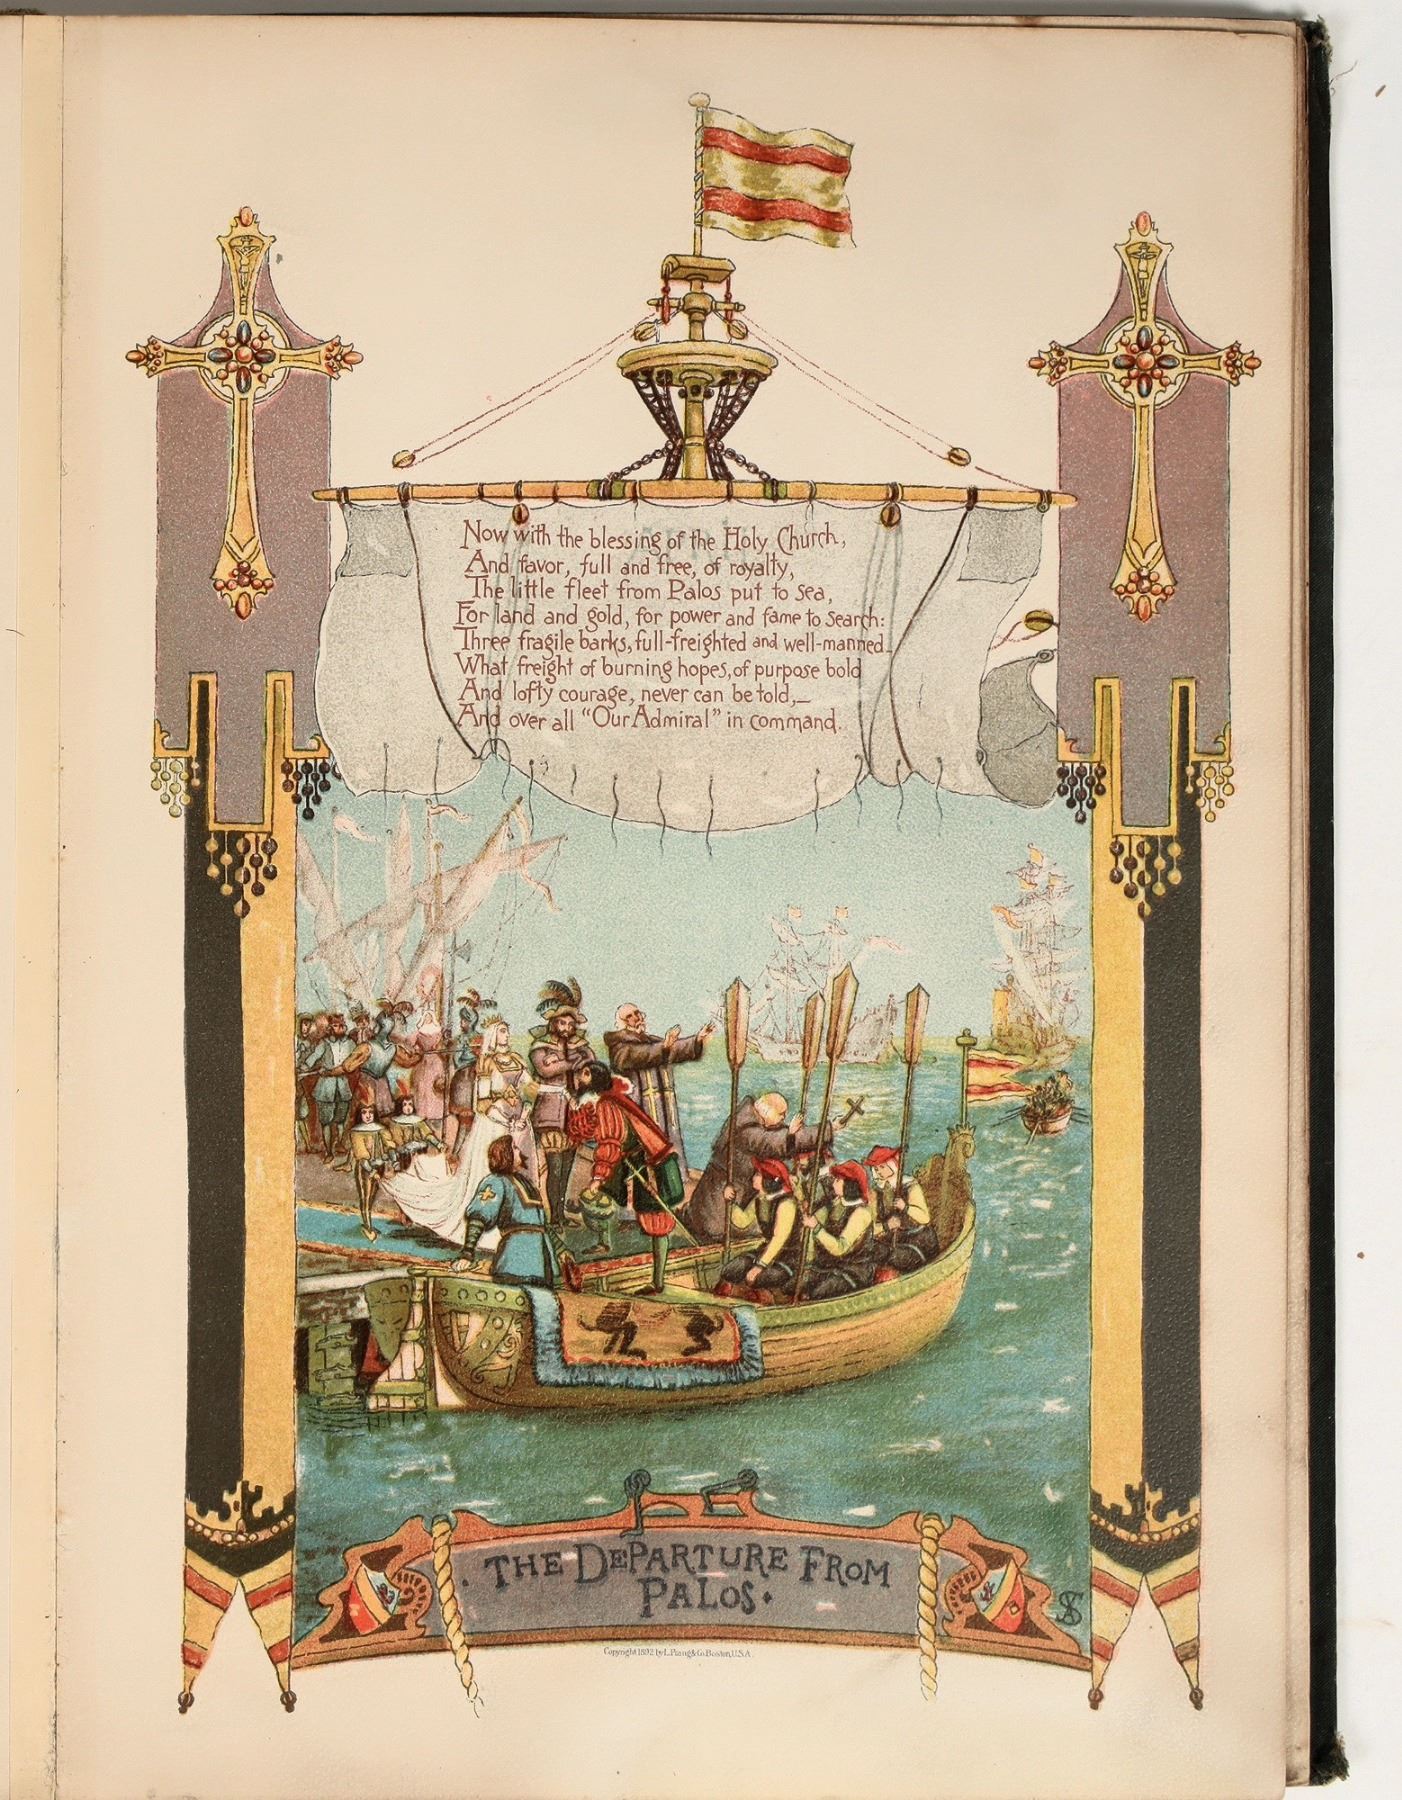 Now with the blessing of the Holy Church,
And favor, full and free, of royalty,
The little fleet from Palos put to sea,
For land and gold, for power and fame to search:
Three fragile barks, full-freighted and well-manned
What freight of burning hopes, of purpose bold
And lofty courage, never can be told,—
And over all "Our Admiral" in command.
· THE DEPARTURE FROM
PALOS ·
Copyright 1892 by L. Prang & Co. Boston, U.S.A.